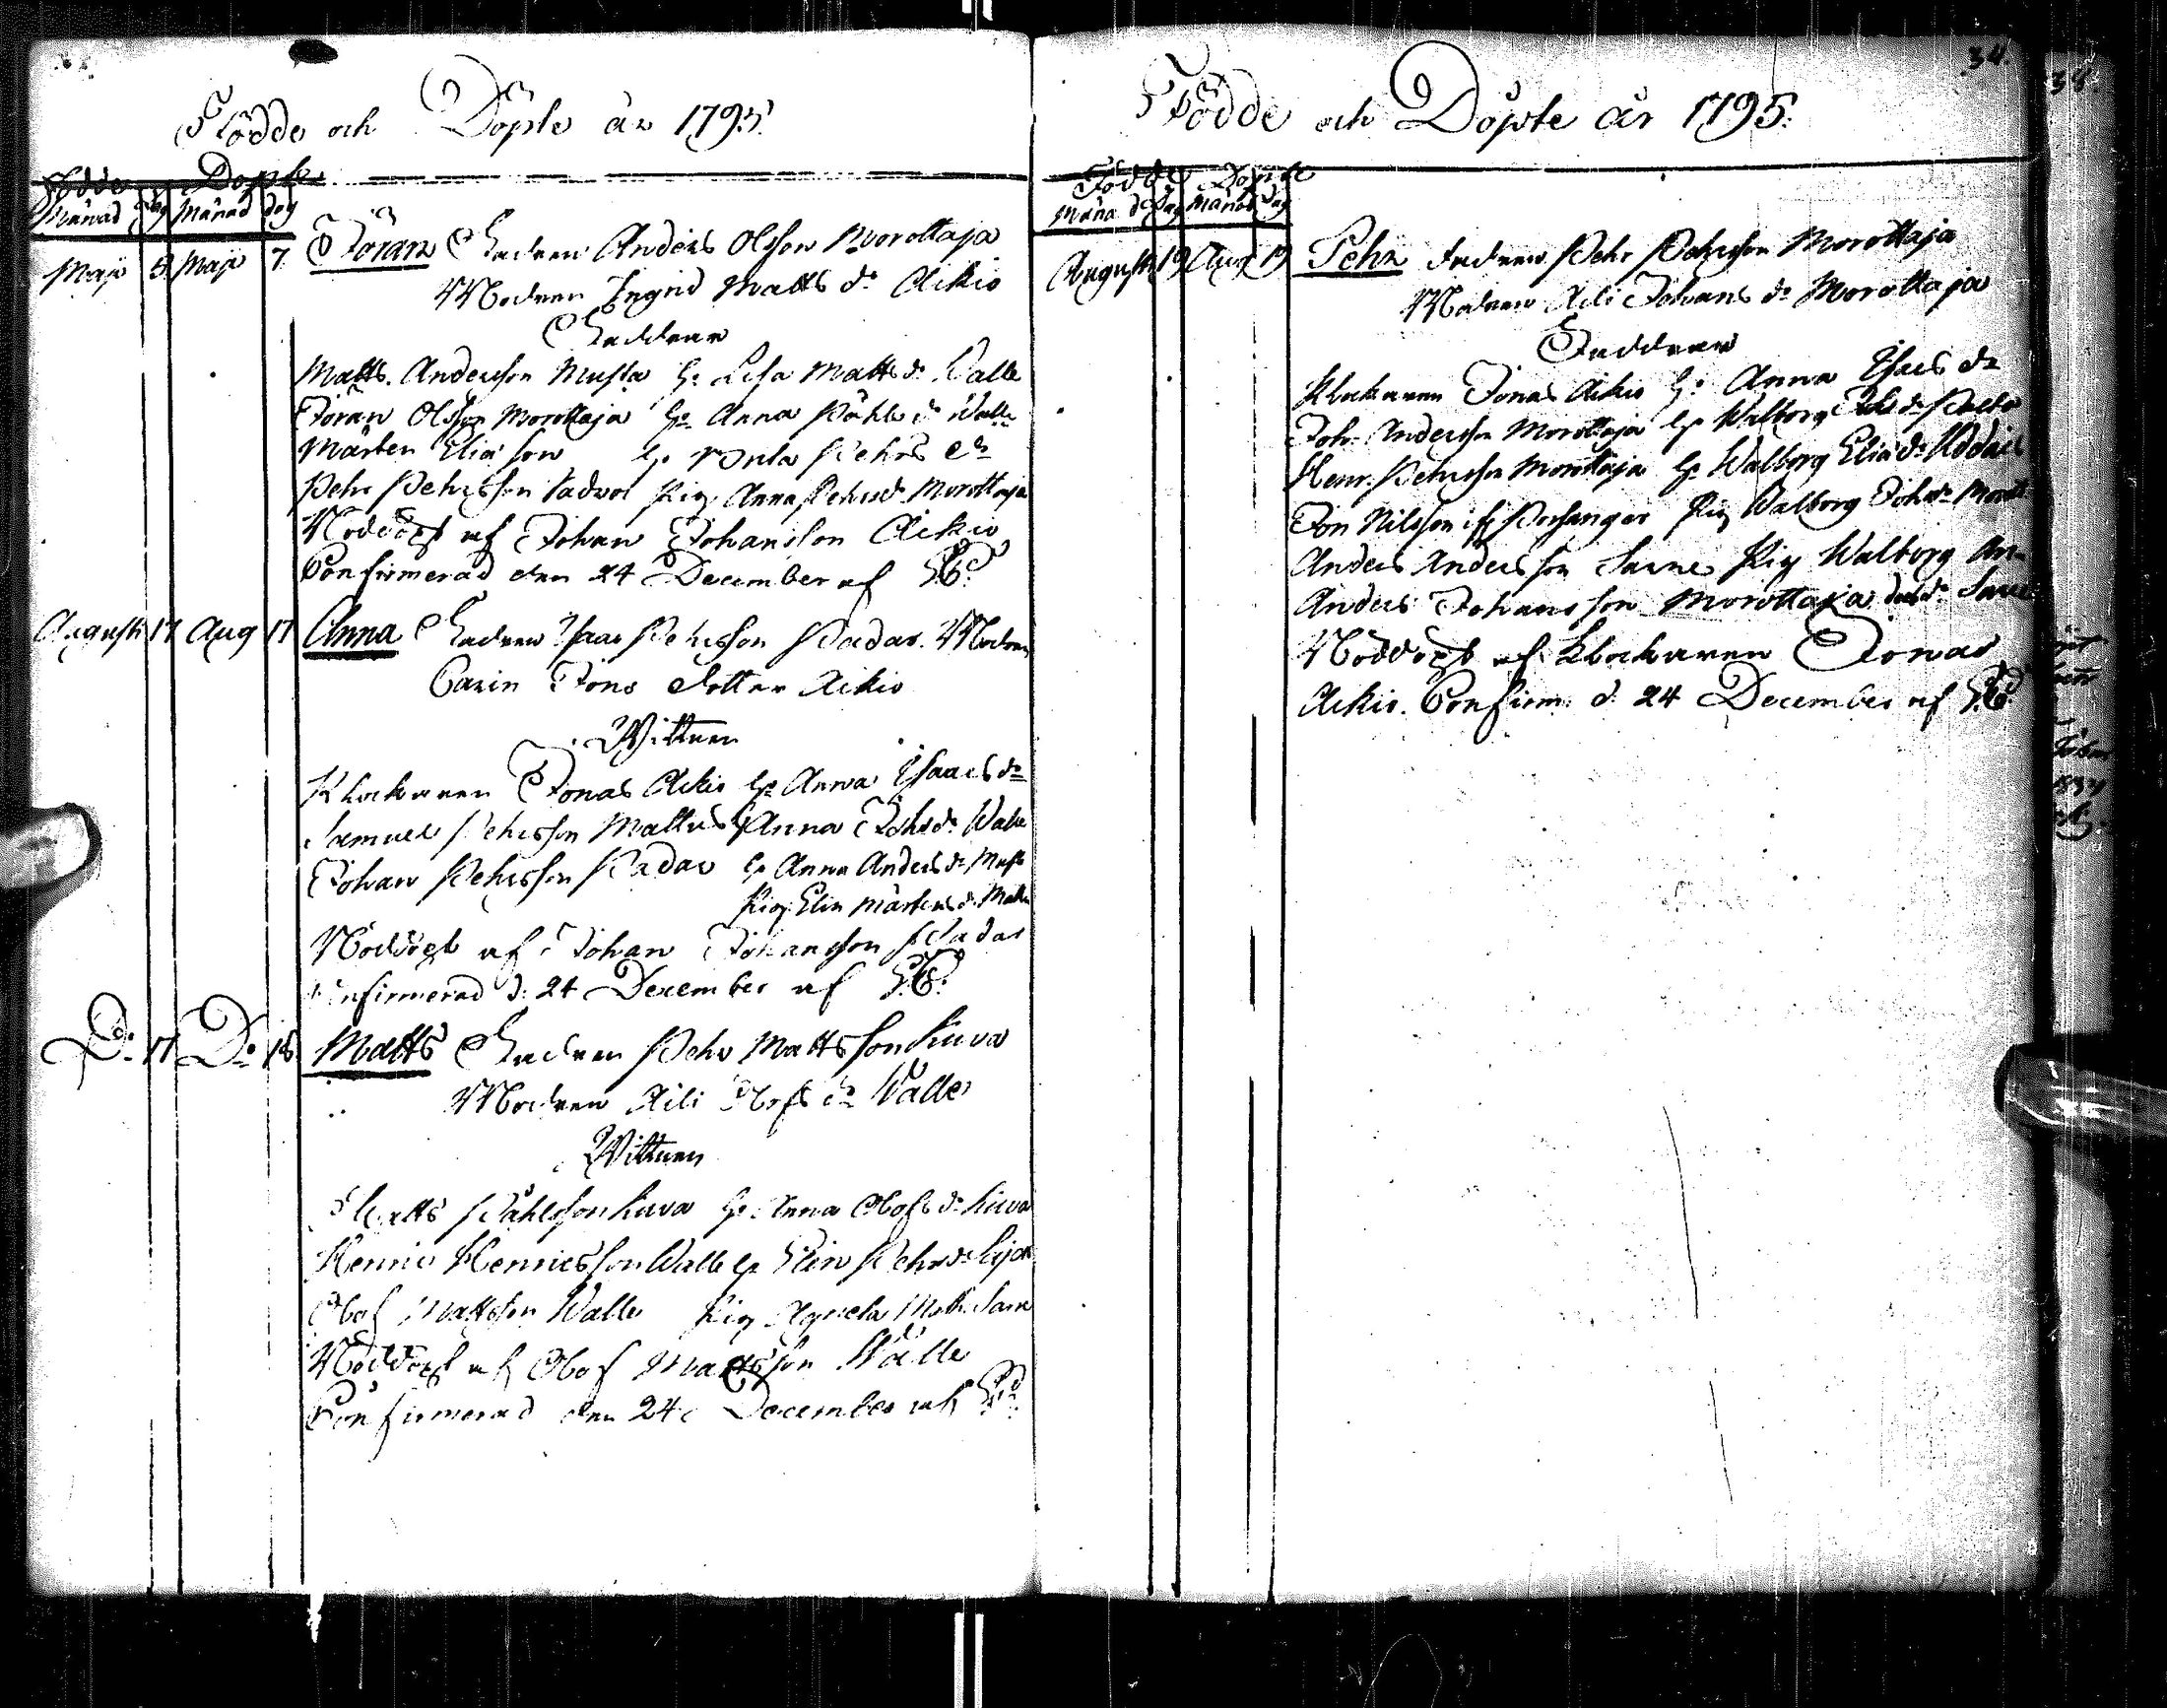 Födde och Döpte år 1795.
Födde Döpte
Månad dag Månad dag
Maji 5 Maji 7. Jöran Fadren Anders Olsson Morottaja
Modren Ingrid Matts dr Aikio
Faddrar
Matts Andersson Musta h: Lisa Matts dr Valle
Jöran Olsson Morottaja hr Anna Påhls dr Valle
Mårten Eliæson h. Pehrs dr
Pehr Pehrsson Sadvo Pig. Anna Pehrs dr Morottaja
Nöddöpt af Johan Johansson Aikio
Confirmerad den 24 December af
Augusti 17 Aug 17 Anna Fadren Isaac Pehrsson Padar. Modren
Carin Jons dotter Aikio
Wittnen
Klockaren Jonas Aikio hr Anna Isaacs dr
Samuel Pehrsson Mattus h Anna Johs dr Valle
Johan Pehrsson Padar hr Anna Anders dr Must
Pig. Elin Mårtens dr Matt
Nöddöpt af Johan Johansson Padar
Confirmerad d: 24 December af
Do 17 Do 18 Matts Fadren Pehr Mattsson Kuva
Modren Aili Olofs dr Valle
Wittnen
Matts Påhlsson Kuva hr Anna Olofs dr Kuva
Henric Henricsson Valle hr Elin Pehrs dr
Olof Mattsson Valle Pig Agneta Matts
Nöddöpt af Olof Mattsson Valle
Confirmerad den 24 December af
34.
Födde och Döpte år 1795.
Födde Döpte
Månad Dag Månad dag
Augusti 19 Aug 19 Pehr Fadren Pehr Pehrsson Morottaja
Modren Aili Johans dr Morottaja
Faddrar
Klockaren Jonas Aikio h: Anna Isacs dr
Joh. Andersson Morottaja hr Walborg dr
Henr. Pehrsson Morottaja hr Walborg Eliæ dr
Jon Nilsson Pig Walborg Joh. dr
Anders Andersson Sarre Pig Walborg An-
Anders Johansson Morottaja ders dr Sarre
Nöddöpt af Klockaren Jonas
Aikio. Confirm: d. 24 December af